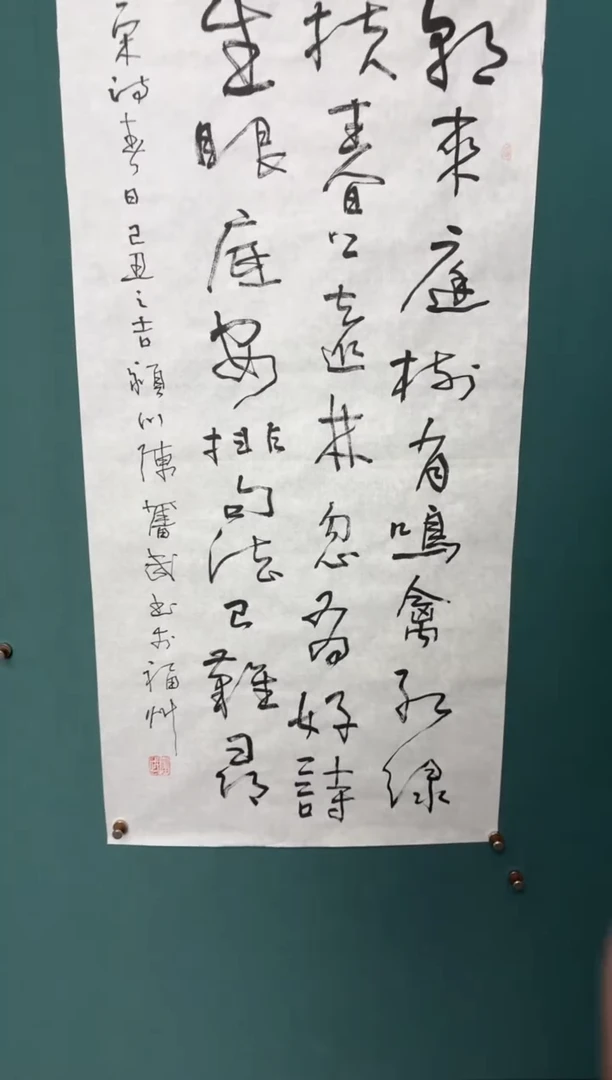 朝來庭樹有鳴禽紅綠
扶春上遠林忽有好詩
生眼底安排句法已難尋
宋詩春日己丑之吉潁川陳奮武書於福州